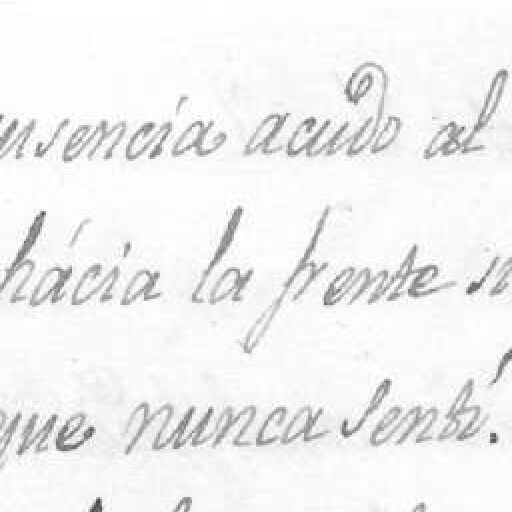 ausencia acudo al
hácia la frente
que nunca sentí.